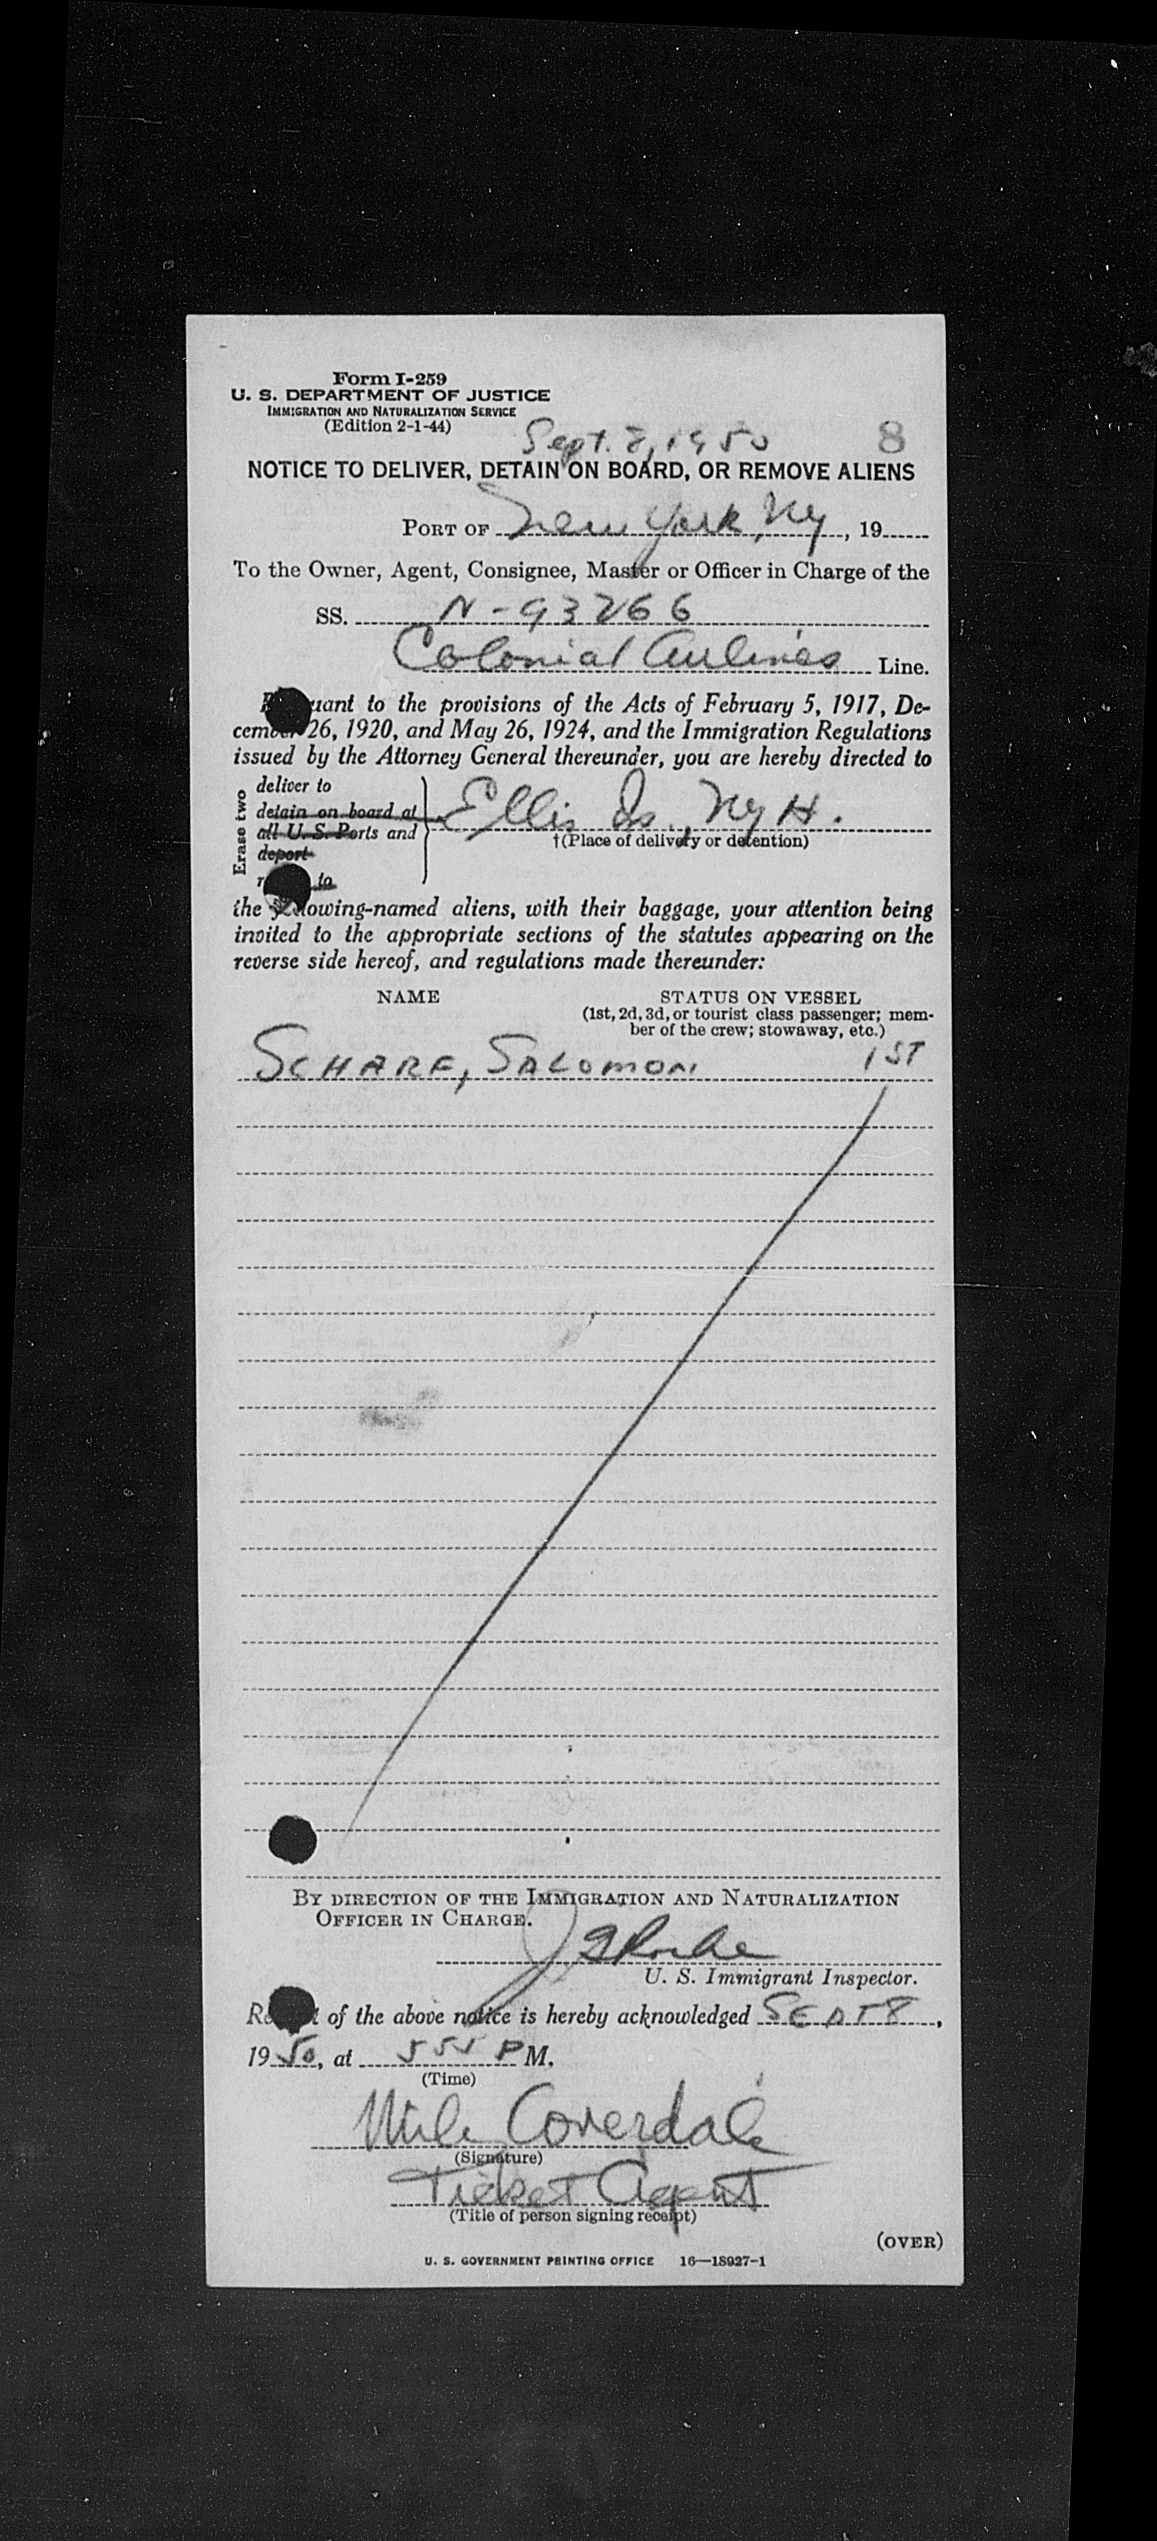 Form I-259
U. S. DEPARTMENT OF JUSTICE
IMMIGRATION AND NATURALIZATION SERVICE
(Edition 2-1-44)
Sept. 8, 1950 8
NOTICE TO DELIVER, DETAIN ON BOARD, OR REMOVE ALIENS
PORT OF New York, NY, 19
To the Owner, Agent, Consignee, Master or Officer in Charge of the
SS. N-93266
Colonial Airlines Line.
uant to the provisions of the Acts of February 5, 1917, De-
cember 26, 1920, and May 26, 1924, and the Immigration Regulations
issued by the Attorney General thereunder, you are hereby directed to
Erase two
deliver to
detain on board at
all U. S. Ports and
deport
to
Ellis Is., NYH.
†(Place of delivery or detention)
the following-named aliens, with their baggage, your attention being
invited to the appropriate sections of the statutes appearing on the
reverse side hereof, and regulations made thereunder:
NAME STATUS ON VESSEL
(1st, 2d, 3d, or tourist class passenger; mem-
ber of the crew; stowaway, etc.)
SCHARF, SALOMON 1ST
BY DIRECTION OF THE IMMIGRATION AND NATURALIZATION
OFFICER IN CHARGE.
U. S. Immigrant Inspector.
of the above notice is hereby acknowledged SEPT 8,
19 50, at 555 P M.
(Time)
Coverdale
(Signature)
Ticket Agent
(Title of person signing receipt)
(OVER)
U. S. GOVERNMENT PRINTING OFFICE 16—18927-1